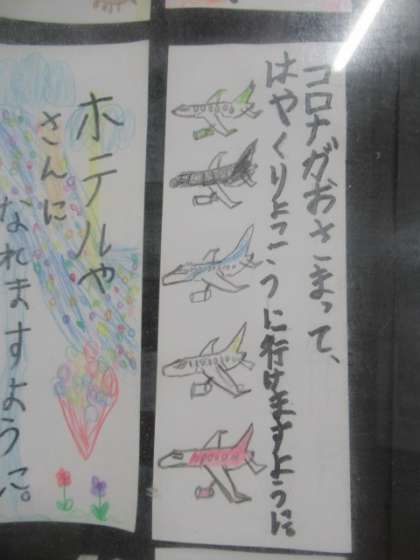 コロナがおさまって、
はやくりょこうに行けますように
ホテルや
さんに
なれますように。